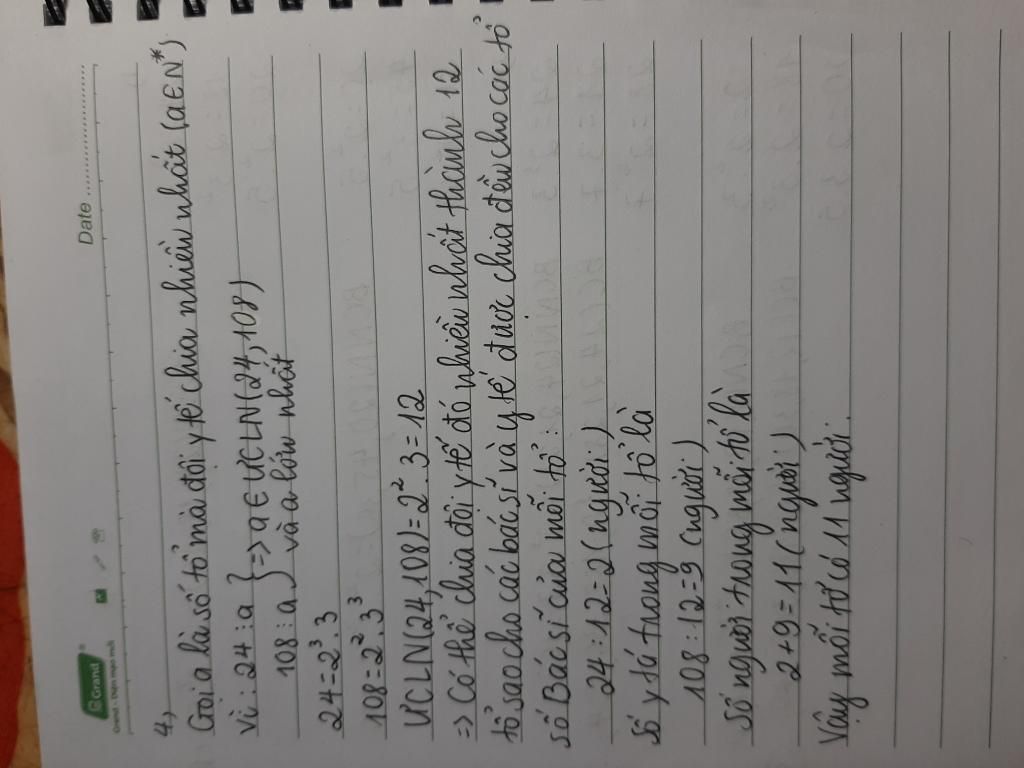 Date
Grand
Grand - Diện mạo mới
4,
Gọi a là số tổ mà đội y tế chia nhiều nhất (a∈N*)
Vì: 24 : a } => a ∈ ƯCLN(24, 108)
108 : a } và a lớn nhất
24 = 2³. 3
108 = 2². 3³
ƯCLN(24, 108) = 2². 3 = 12
=> Có thể chia đội y tế đó nhiều nhất thành 12
tổ sao cho các bác sĩ và y tế được chia đều cho các tổ
số Bác sĩ của mỗi tổ:
24 : 12 = 2 (người)
Số y tá trong mỗi tổ là
108 : 12 = 9 (người)
Số người trong mỗi tổ là
2 + 9 = 11 (người)
Vậy mỗi tổ có 11 người.